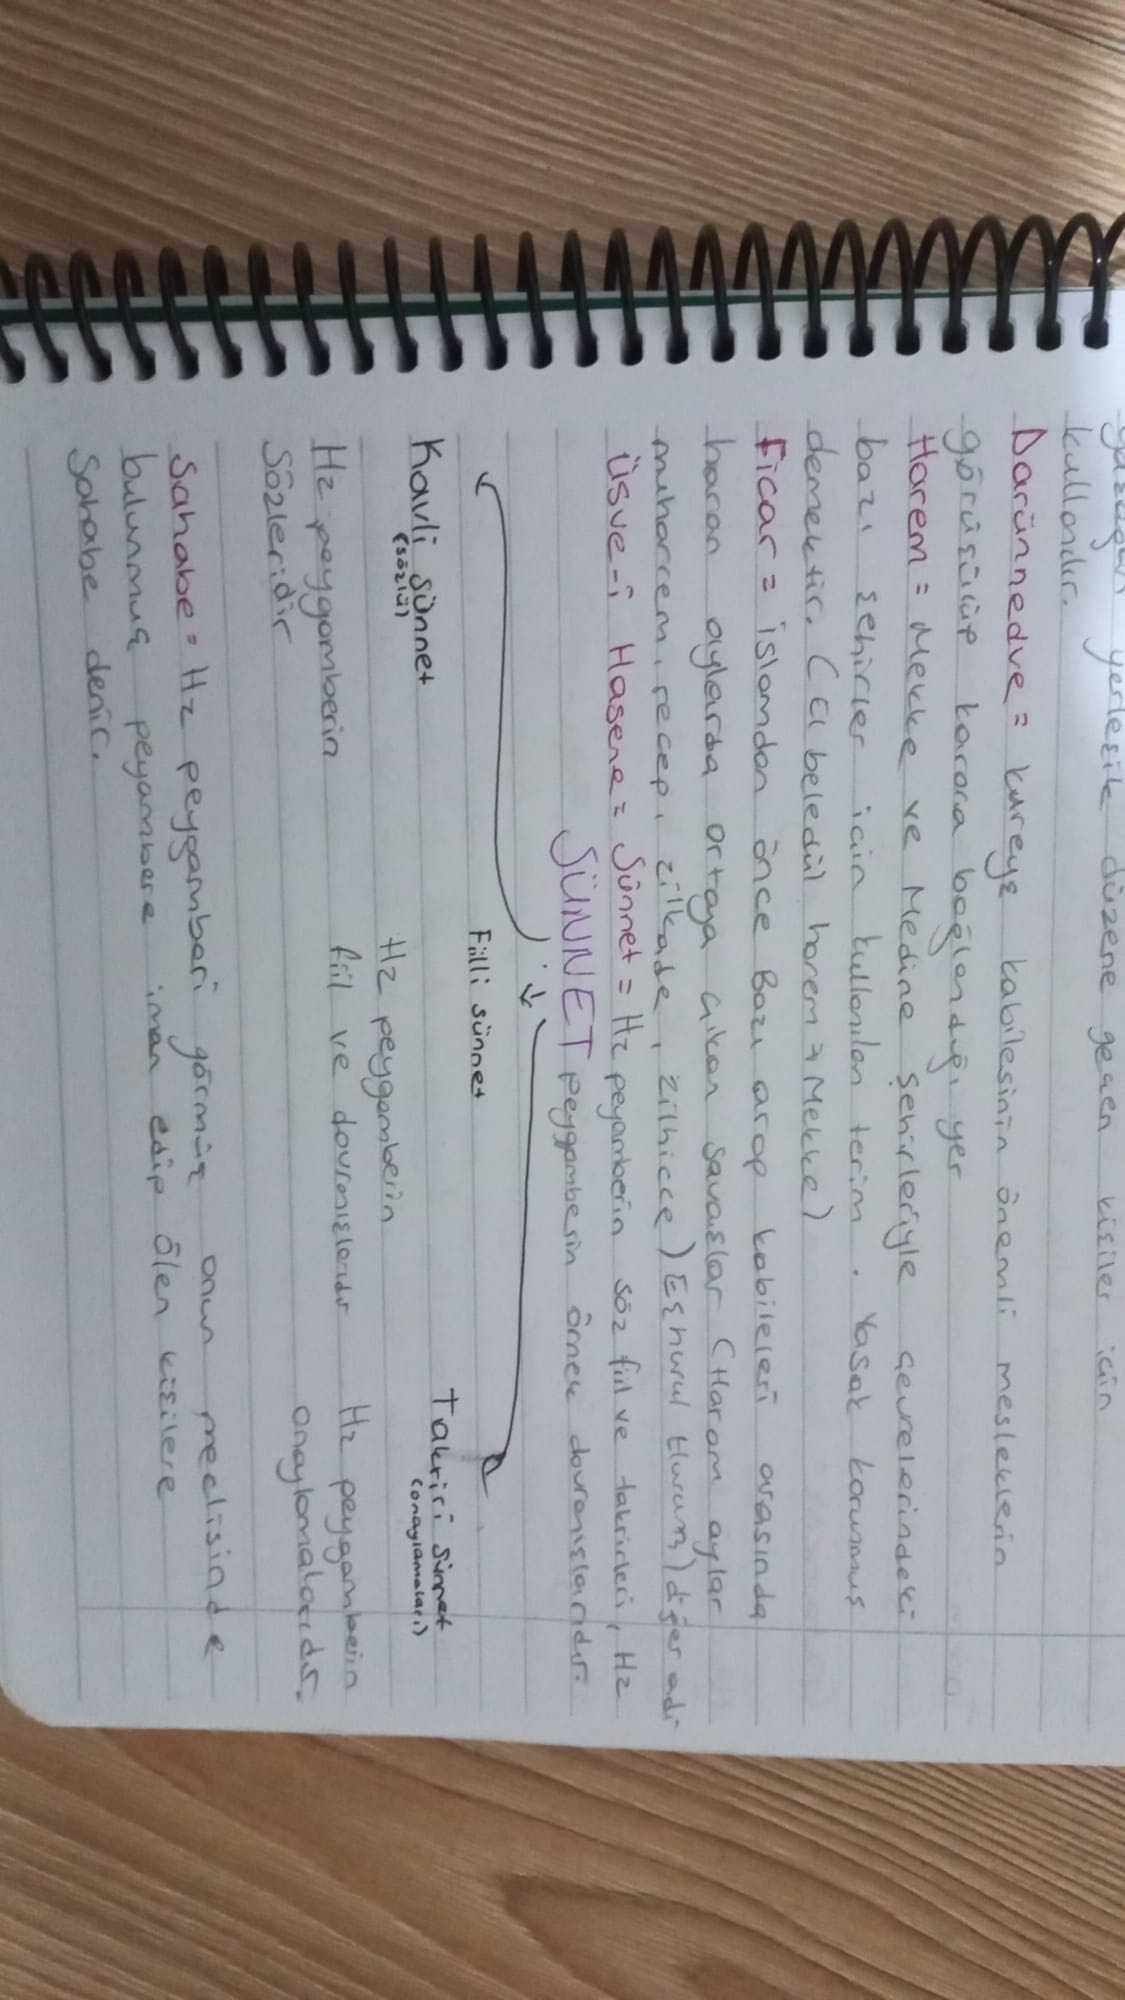 yerleşik düzene geçen kişiler için
kullanılır.
Darünnedve = kureyş kabilesinin önemli mesleklerin
görüşülüp karara bağlandığı yer
Harem = Mekke ve Medine şehirleriyle çevrelerindeki
bazı şehirler için kullanılan terim. Yasak korunmuş
demektir. (El beledül harem → Mekke)
Ficar = islamdan önce Bazı arap kabileleri arasında
haram aylarda ortaya çıkan savaşlar (Haram aylar
muharrem, recep, zilkade, zilhicce) Eşhurul Hurum) diğer adı
Üsve-i Hasene = Sünnet = Hz peyamberin söz fiil ve takrirleri, Hz
SÜNNET peygamberin örnek davranışlarıdır.
Fiilli sünnet
Kavli sünnet
(sözlü)
Takriri sünnet
(onaylamaları)
Hz peygamberin
sözleridir
Hz peygamberin
fiil ve davranışlarıdır
Hz peygamberin
onaylamalarıdır.
Sahabe = Hz peygamberi görmüş onun meclisinde
bulunmuş peyambere iman edip ölen kişilere
Sahabe denir.